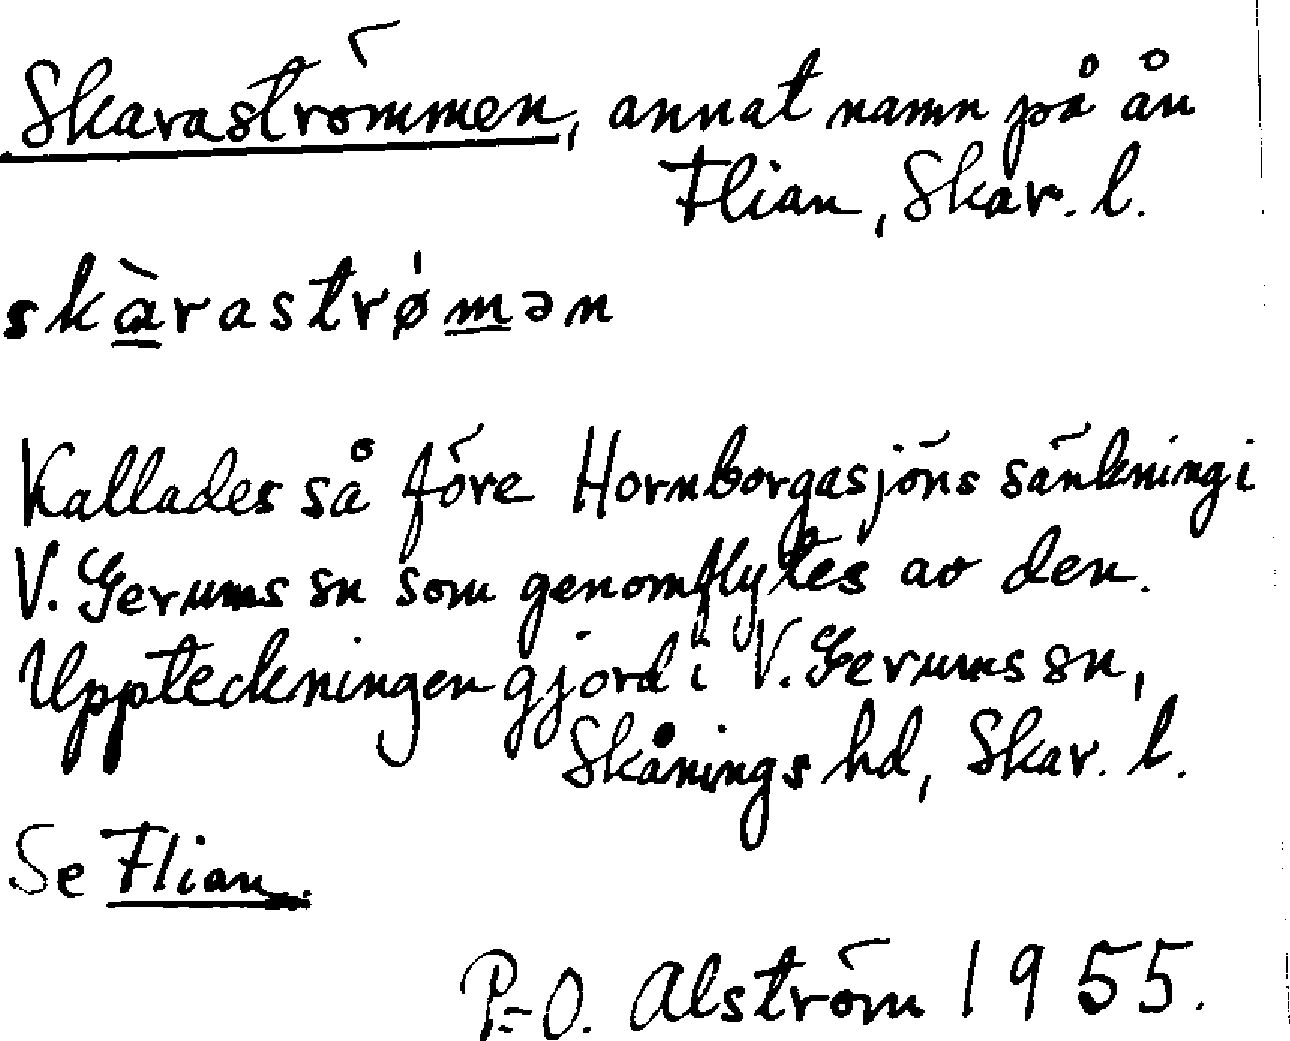 Skaraströmmen, annat namn på ån
Flian, Skar. l.
skàrastrǿmən
Kallades så före Hornborgasjöns sänkning i
V. Gerums sn som genomflytes av den.
Uppteckningen gjord i V. Gerums sn,
Skånings hd, Skar. l.
Se Flian.
P.-O. Alström 1955.